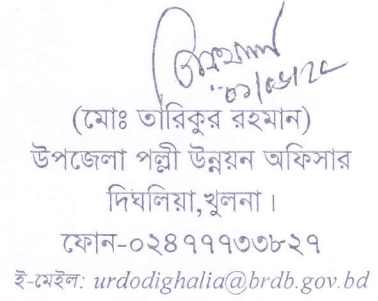 (মোঃ তারিকুর রহমান)
উপজেলা পল্লী উন্নয়ন অফিসার
দিঘলিয়া,খুলনা।
ফোন-০২৪৭৭৭৩৩৮২৭
ই-মেইল: urdodighalia@brdb.gov.bd